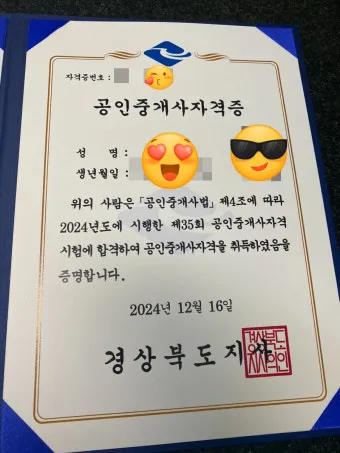 자격증번호 :
공인중개사자격증
성 명 :
생년월일 :
위의 사람은 「공인중개사법」 제4조에 따라
2024년도에 시행한 제35회 공인중개사자격
시험에 합격하여 공인중개사자격을 취득하였음을
증명합니다.
2024년 12월 16일
경상북도지사